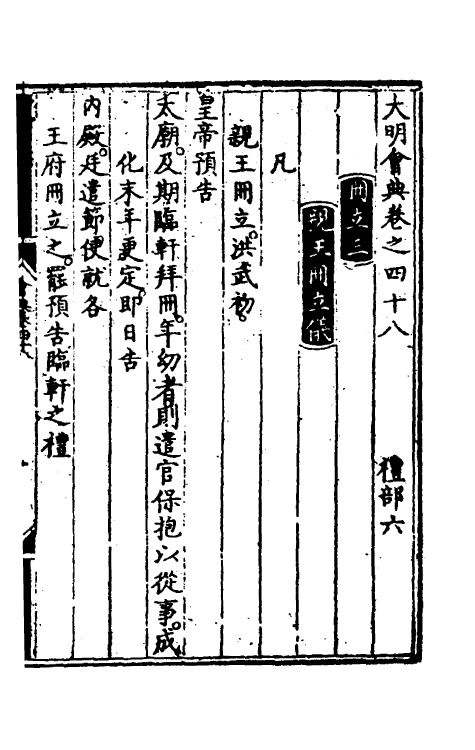 大明會典卷之四十八 禮部六
冊立三
親王冊立儀
凡
親王冊立。洪武初。
皇帝預告
太廟。及期臨軒拜冊。年幼者則遣官保抱以從事。成
化末年更定。即日告
內殿。廷遣節使就各
王府冊立之。罷預告臨軒之禮